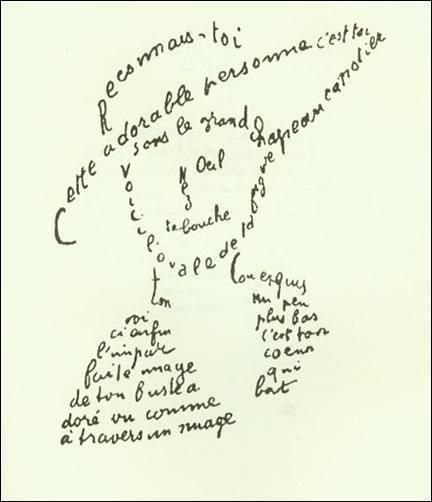 Reconnais-toi
Cette adorable personne c'est toi
Sous le grand chapeau canotier
Oeil
Nez
ta bouche
Voici l'ovale de ta figure
ton
Cou exquis
voi
ci enfin
l'impar
faite image
de ton buste a
doré vu comme
à travers un nuage
un peu
plus bas
c'est ton
coeur
qui
bat